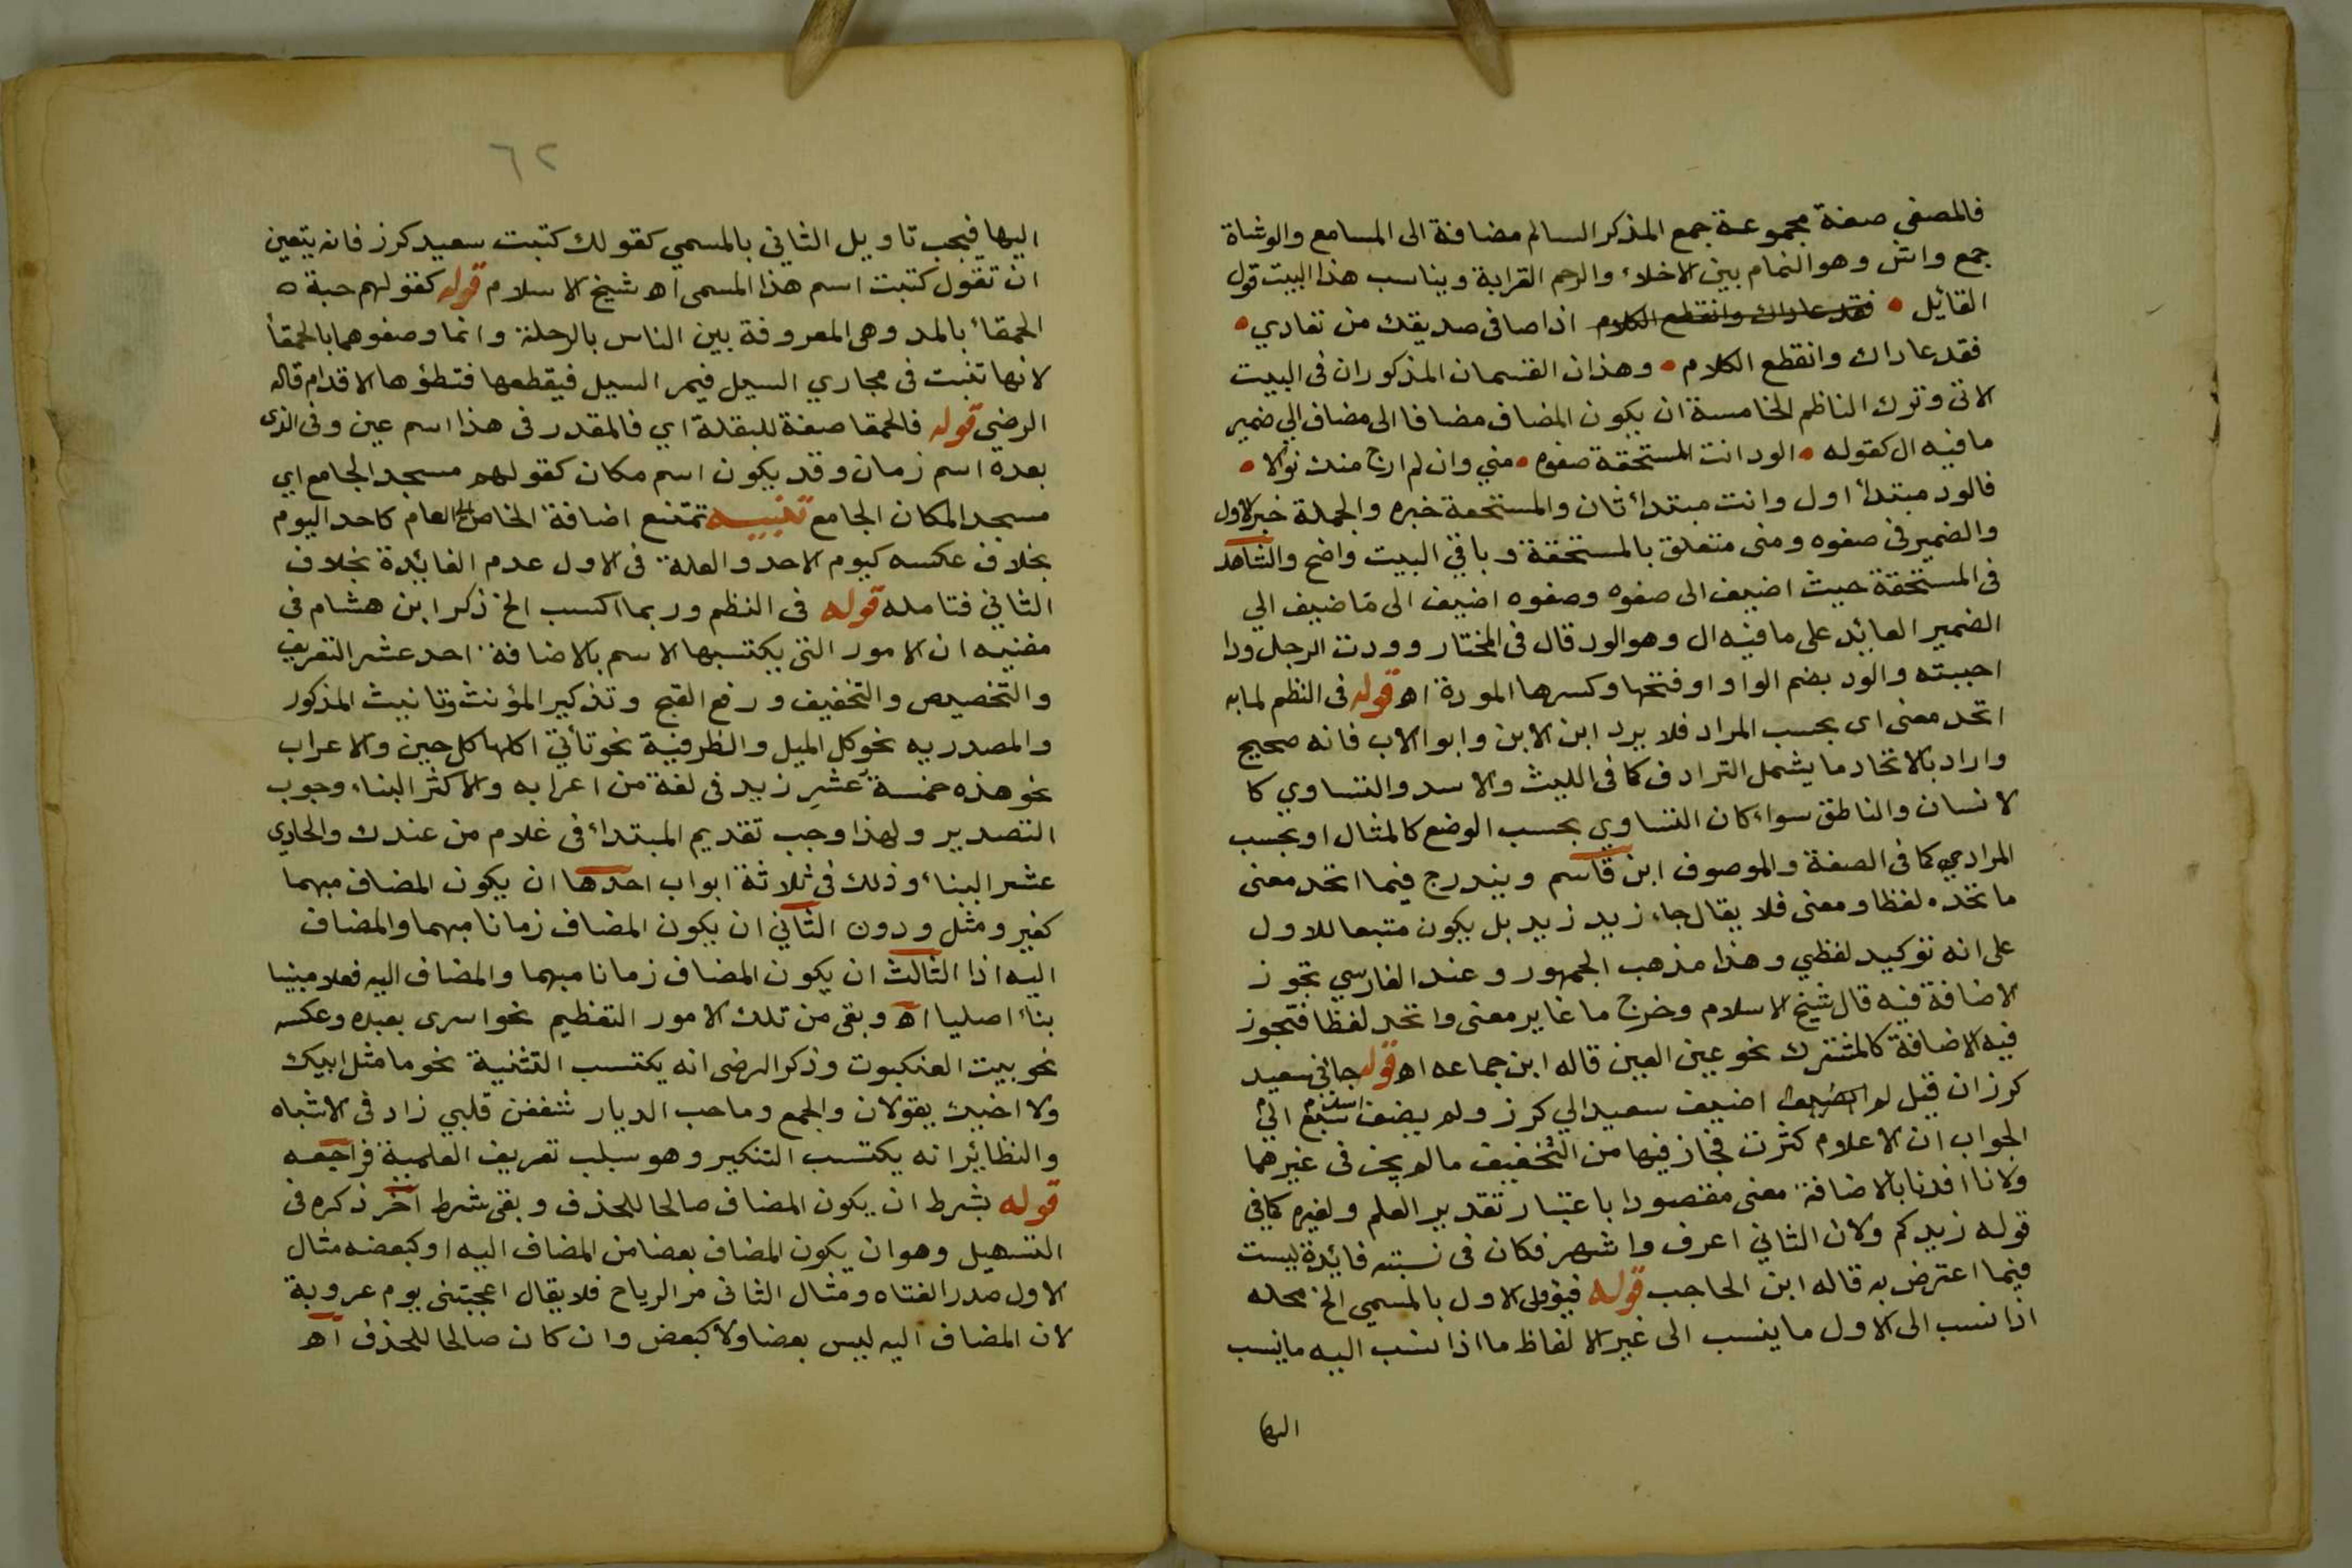 فالمصغي صفة مجموعة جمع المذكر السالم مضافة الى المسامع والوشاة
جمع واش وهو النمام بين الاخلاء والرحم القرابة ويناسب هذا البيت قول
القائيل • فقد عاداك وانقطع الكلام اذا صافى صديقك من تعادي •
فقد عاداك وانقطع الكلام • وهذان القسمان المذكوران فى البيت
الاتى وترك الناظم الخامسة ان يكون المضاف مضافا الى مضاف الي ضمير
ما فيه ال كقوله • الود انت المستحقة صفوه • مني وان لم ارج منك نوالا •
فالود مبتدأ اول وانت مبتدأ ثان والمستحقة خبره والجملة خبر الاول
والضمير فى صفوه ومنى متعلق بالمستحقة وباقي البيت واضح والشاهد
فى المستحقة حيث اضيف الى صفوه وصفوه اضيف الى مَا ضيف الي
الضمير العايد على ما فيه ال وهو الود قال فى المختار وودت الرجل ودا
احببته والود بضم الواو او فتحها وكسرها المودة اه قوله فى النظم لما به
اتحد معنى اى بحسب المراد فلا يرد ابن الابن وابو الاب فانه صحيح
واراد بالاتحاد ما يشمل الترادف كما فى الليث والاسد والتساوي كا
لانسان والناطق سواء كان التساوي بحسب الوضع كالمثال او بحسب
المرادي كما فى الصفة والموصوف ابن قاسم ويندرج فيما اتحد معنى
ما تحده لفظا ومعنى فلا يقال جاء زيد زيد بل يكون متبعا للاول
على انه توكيد لفظي وهذا مذهب الجمهور وعند الفارسي تجوز
الاضافة فيه قال شيخ الاسلام وخرج ما غاير معنى واتحد لفظا فتجوز
فيه الاضافة كالمشترك نحو عين العين قاله ابن جماعه اه قوله جائني سعيد
كرز ان قيل لم اضيف سعيد الي كرز ولم يضف
الجواب ان الاعلام كثرت فجاز فيها من التخفيف ما لم يجز فى غيرهما
ولانا افدنا بالاضافة معنى مقصودا باعتبار تقدير العلم ولغيره كما في
قوله زيدكم ولان الثاني اعرف واشهر فكان فى نسبته فائدة ليست
فيما اعترض به قاله ابن الحاجب قوله فيؤول الاول بالمسمي الخ محله
اذا نسب الى الاول ما ينسب الى غير الالفاظ ما اذا نسب اليه ما ينسب
اليها
٦٢
اليها فيجب تاويل الثاني بالمسمي كقولك كتبت سعيد كرز فانه يتعين
ان تقول كتبت اسم هذا المسمى اه شيخ الاسلام قوله كقولهم حبة ه
الحمقاء بالمد وهى المعروفة بين الناس بالرجلة وانما وصفوهما بالحمقأ
لانها تنبت فى مجاري السيل فيمر السيل فيقطعها فتطؤها الاقدام قاله
الرضي قوله فالحمقا صفة للبقلة اي فالمقدر فى هذا اسم عين وفى الذى
بعده اسم زمان وقد يكون اسم مكان كقولهم مسجد الجامع اي
مسجد المكان الجامع تنبيه تمتنع اضافة الخاص الى العام كاحد اليوم
بخلاف عكسه كيوم الاحد والعلة فى الاول عدم الفائدة بخلاف
الثاني فتامله قوله فى النظم وربما اكسب الخ ذكر ابن هشام فى
مغنيه ان الامور التى يكتسبها الاسم بالاضافة احد عشر التعريف
والتخصيص والتخفيف ورفع القبح وتذكير المؤنث وتانيث المذكور
والمصدريه نحو كل الميل والظرفية نحو تأتي اكلها كل حين والاعراب
نحو هذه خمسةَ عَشَرِ زيد فى لغة من اعرابه والاكثر البناء وجوب
التصدير ولهذا وجب تقديم المبتداء فى غلام من عندك والحادى
عشر البناء وذلك فى ثلاثة ابواب احدها ان يكون المضاف مبهما
كغير ومثل ودون الثاني ان يكون المضاف زمانا مبهما والمضاف
اليه اذا الثالث ان يكون المضاف زمانا مبهما والمضاف اليه فعلا مبنيا
بناء اصليا اه وبقى من تلك الامور التعظيم نحو اسرى بعبده وعكسه
نحو بيت العنكبوت وذكر الرضى انه يكتسب التثنية نحو ما مثل ابيك
ولا اخيك يقولان والجمع وما حب الديار شغفن قلبي زاد فى الاشباه
والنظائر انه يكتسب التنكير وهو سبلب تعريف العلمية فراجعه
قوله بشرط ان يكون المضاف صالحا للحذف وبقى شرط اخر ذكره فى
التسهيل وهو ان يكون المضاف بعضا من المضاف اليه او كبعضه مثال
الاول صدر الفتاه ومثال الثانى مر الرياح فلا يقال اعجبتنى يوم عروبة
لان المضاف اليه ليس بعضا ولا كبعض وان كان صالحا للحذف اه